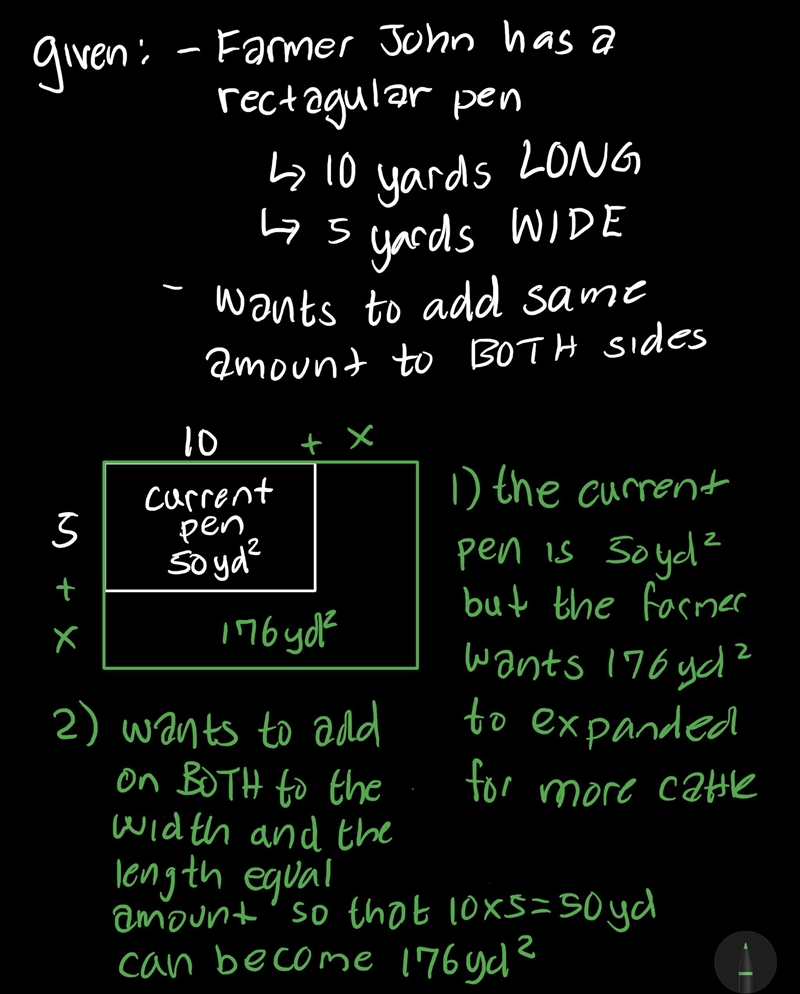 given: - Farmer John has a
rectagular pen
↳ 10 yards LONG
↳ 5 yards WIDE
- wants to add same
amount to BOTH sides
10 + x
5
+
x
current
pen
50 yd²
176 yd²
1) the current
pen is 50 yd²
but the farmer
wants 176 yd²
to expanded
for more cattle
2) wants to add
on BOTH to the
width and the
length equal
amount so that 10x5=50yd
can become 176 yd²